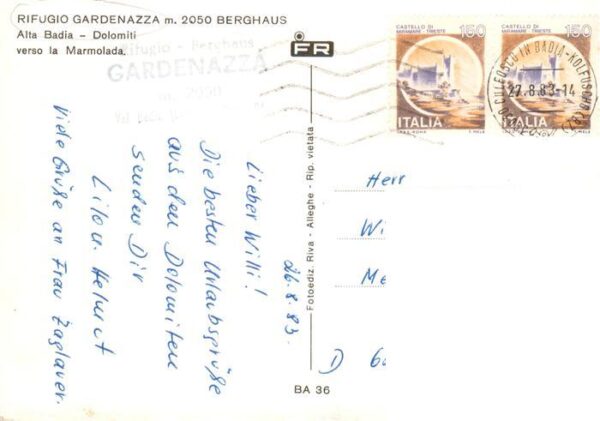 RIFUGIO GARDENAZZA m. 2050 BERGHAUS
Alta Badia – Dolomiti
verso la Marmolada.
Rifugio - Berghaus
GARDENAZZA
m. 2050
FR
CASTELLO DI
MIRAMARE - TRIESTE
150
ITALIA
I.P.Z.S. - ROMA
E. MELE
CASTELLO DI
MIRAMARE - TRIESTE
150
ITALIA
I.P.Z.S. - ROMA
E. MELE
27.8.83-14
26.8.83.
Lieber Willi!
Die besten Urlaubsgrüße
aus den Dolomiten
senden Dir
Lilo u. Helmut
Viele Grüße an Frau Zaglauer.
Fotoediz. Riva - Alleghe - Rip. vietata
Herr
Wi
Me
D
BA 36